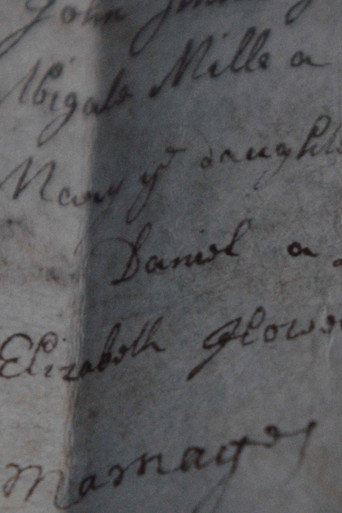 John
Abigale Mills a
Mary ye daught
Daniel a
Elizabeth Glowe
Marriages